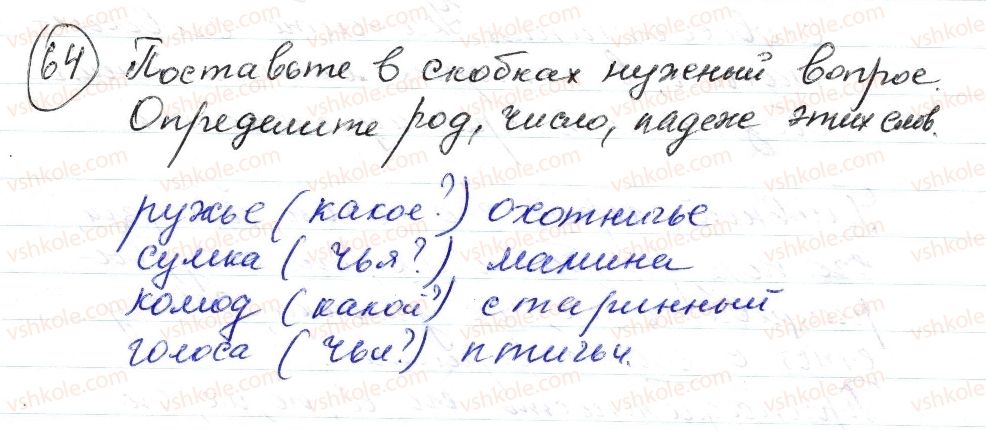 64 Поставьте в скобках нужный вопрос.
Определите род, число, падеж этих слов.
ружье (какое?) охотничье
сумка (чья?) мамина
комод (какой?) старинный
голоса (чьи?) птичьи.